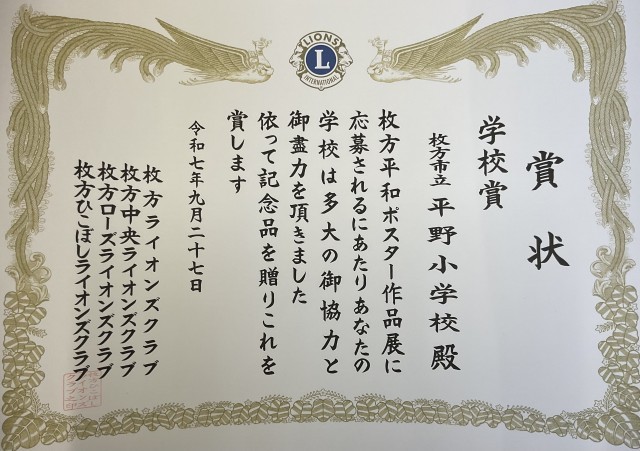 賞状
学校賞
枚方市立 平野小学校 殿
枚方平和ポスター作品展に
応募されるにあたりあなたの
学校は多大の御協力と
御盡力を頂きました
依って記念品を贈りこれを
賞します
令和七年九月二十七日
枚方ライオンズクラブ
枚方中央ライオンズクラブ
枚方ローズライオンズクラブ
枚方ひこぼしライオンズクラブ
LIONS
L
INTERNATIONAL